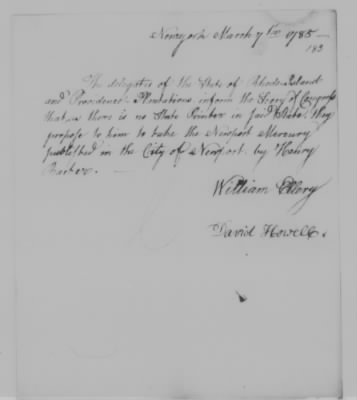 Newyork March 7th 1785 —
183
The delegates of the State of Rhode-Island
and Providence-Plantations inform the Secry of Congress
that as there is no State Printer in said State, they
propose to him to take the Newport Mercury
published in the City of Newport by Henry
Barber.
William Ellery
David Howell.